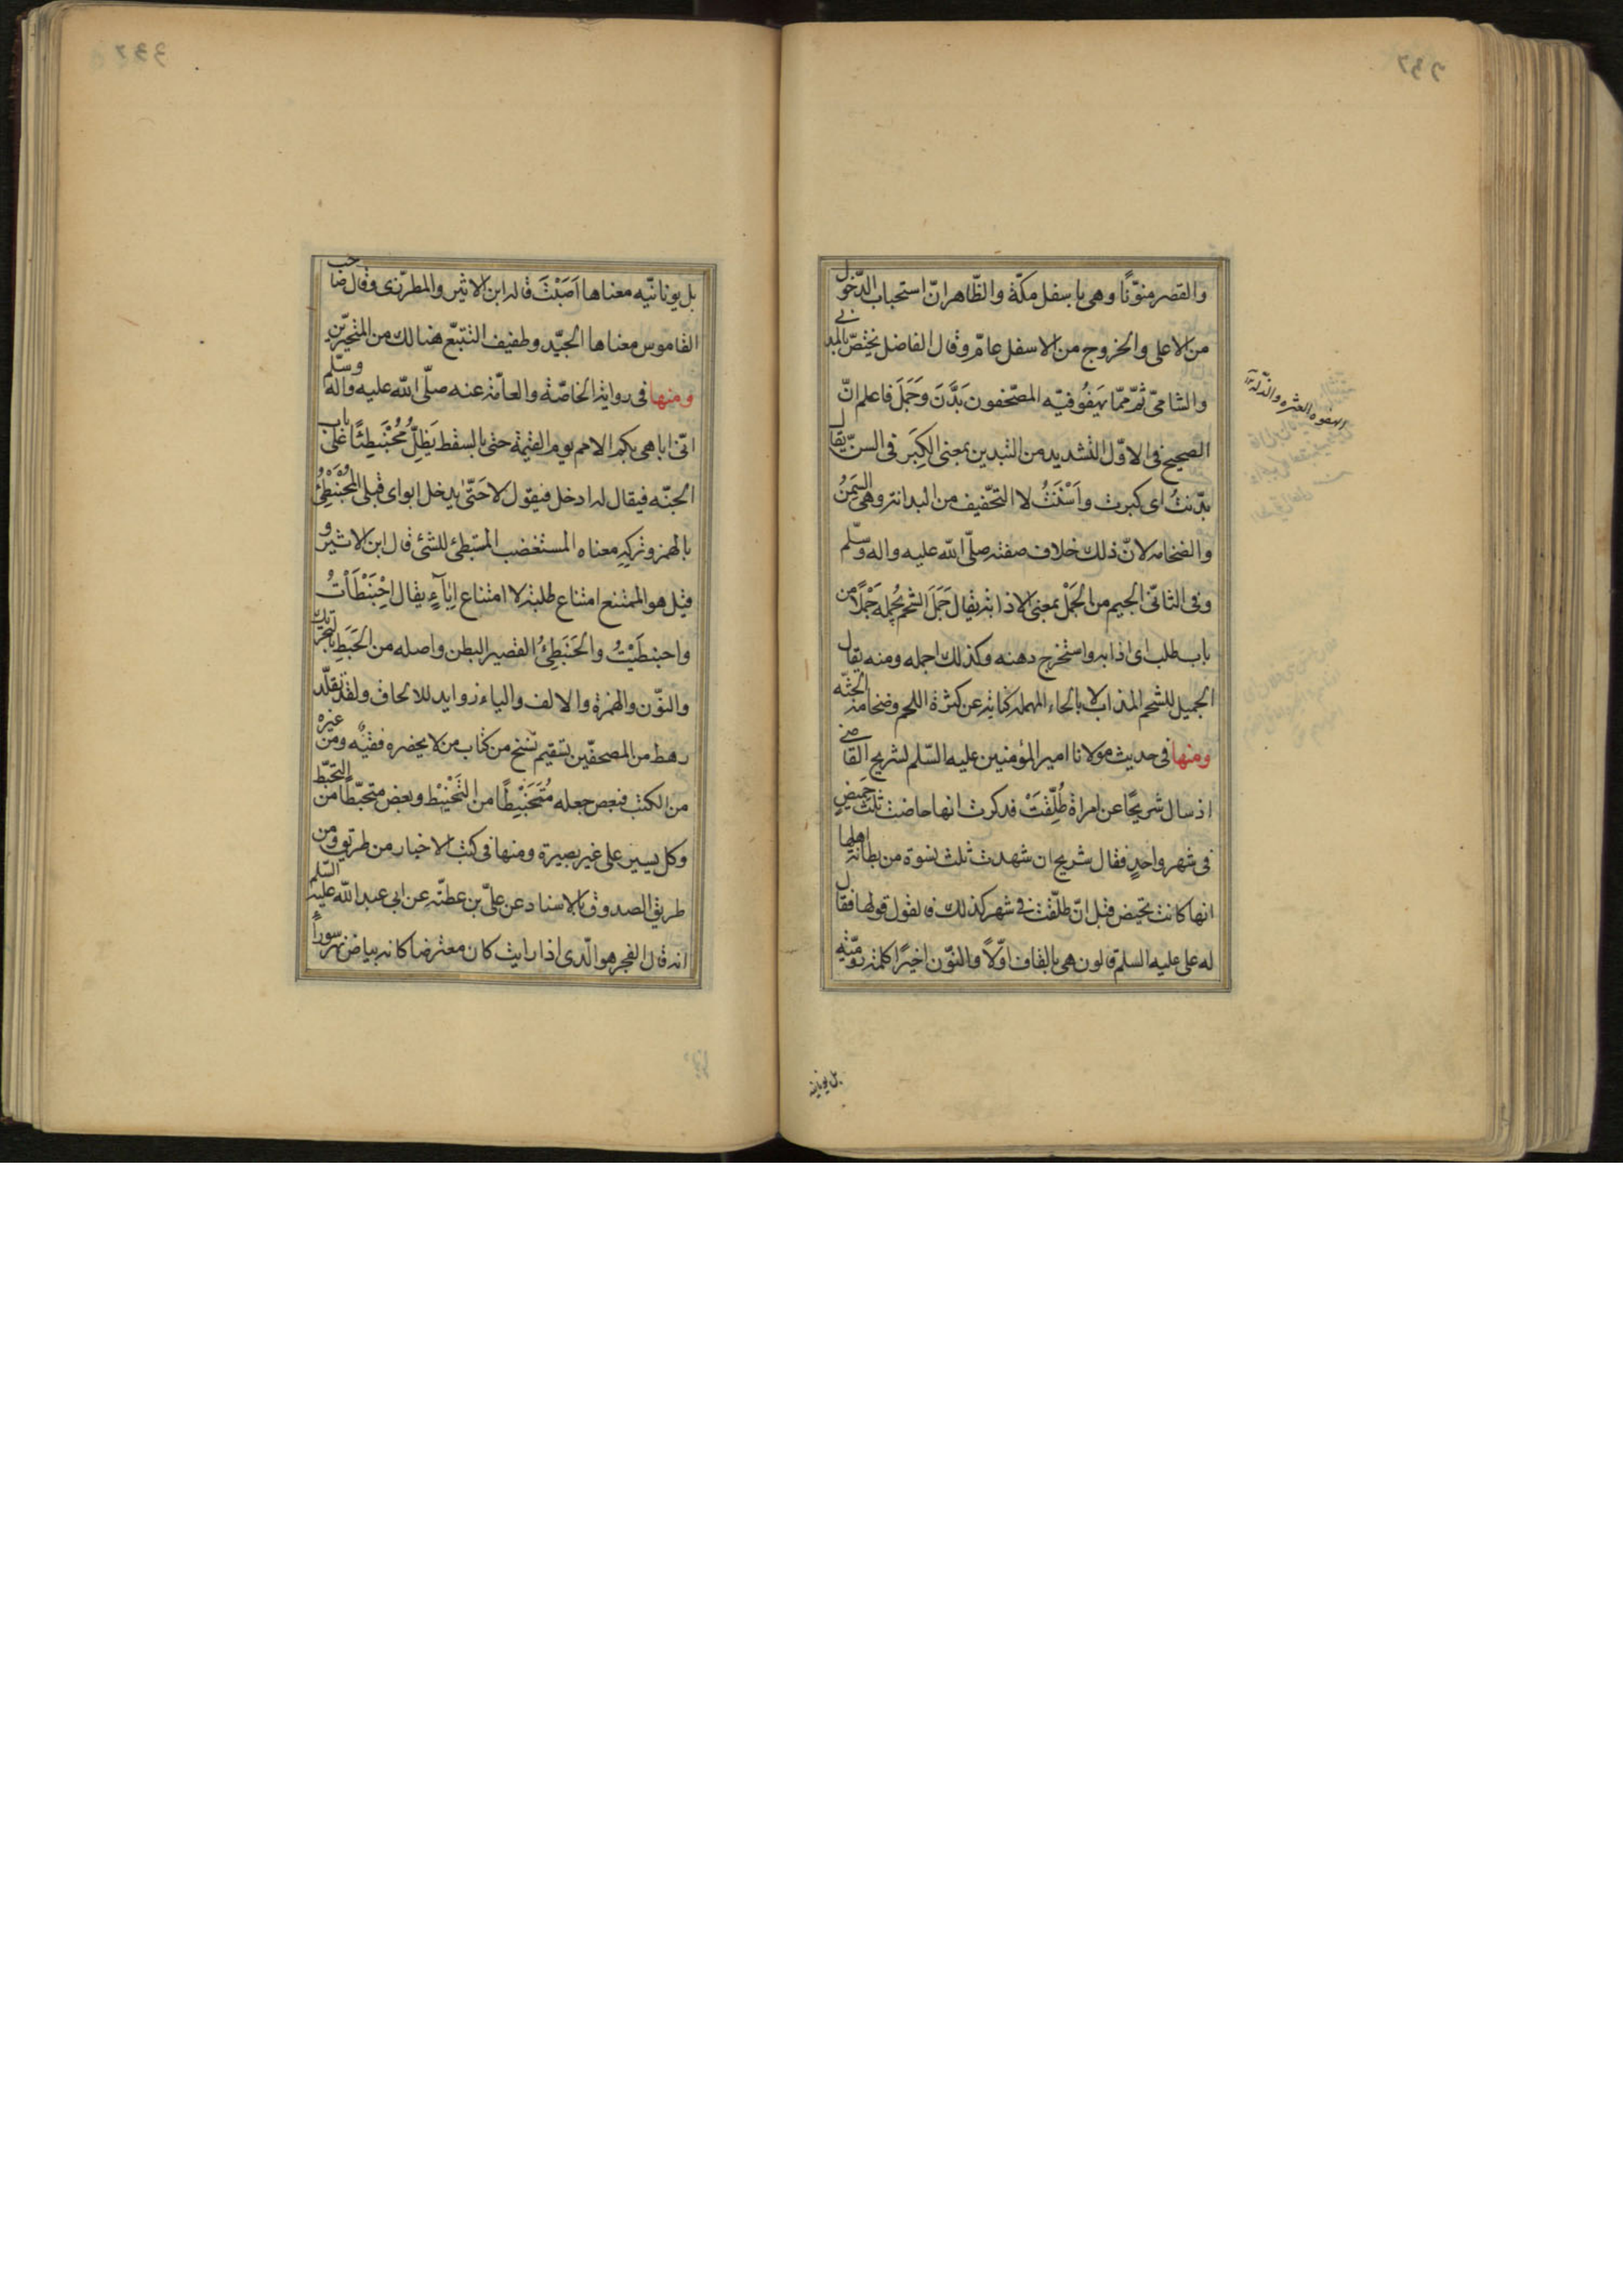 والقصر منوّنًا وهى باسفل مكّة والظّاهر انّ استحباب الدّخول
من الاعلى والخروج من الاسفل عامّ وقال الفاضل يختصّ بالمدنى
والشامىّ ثمّ ممّا يهفُو فيه المصحّفون بَدَّنَ وَجَمَلَ فاعلم انّ
الصحيح فى الاوّل التشديد من التبدين بمعنى الكِبَر فى السنّ يقال
بدّنتُ اى كبرت واَسْنَنْتُ لا التخّفيف من البدانة وهى السِّمَنُ
والضخامه لانّ ذلك خلاف صفته صلّى الله عليه واله وسّلم
وفى الثانىّ الجيم من الجَمْل بمعنى الاذابة يقال جَمَلَ الشحمَ يُجمله جَمْلًا من
باب طلب اى اذابه واستخرج دهنه وكذلك اجمله ومنه يقال
الجميل للشحم المذاب لا بالحاء المهمله كناية عن كثرة اللحم وضخامة الجثّه
ومنها فى حديث مولانا امير المؤمنين عليه السّلم لشريح القاضى
اذ سال شريحًا عن امراة طُلِّقَتْ فذكرت انها حاضت ثلث حِيَضٍ
فى شهر واحدٍ فقال شريح ان شهدت ثلث نسوة من بطانة اهلها
انها كانت تحيض قبل انّ طلّقت فى شهر كذلك فالقول قولها فقال
له على عليه السلم قالون هى بالقاف اوّلًا والنوّن اخيرًا كلمة روميّة
بل يونانيه
الهفوه العثره والذّلة
بل يونانيّه معناها اَصَبْتَ قاله ابن الاثير والمطرّزى وقال صاحب
القاموس معناها الجيّد وطفيف التتبّع هنالك من المتحيّرين
ومنها فى رواية الخاصّة والعامّة عنه صلّى الله عليه واله وسّلم
انّى اباهى بكم الامم يوم القيمة حتى بالسقط يَظِلُّ مُحْبَنْطِئًا على باب
الجنّه فيقال له ادخل فيقول لا حَتّى يدخل ابواى قبلى المُحْبَنْطِئُ
بالهمز وتركهِ معناه المستغضب المستبطئ للشئ قال ابن الاثير و
قيل هو الممتنع امتناع طلبة لا امتناع اِبَآءٍ يقال اِحْبَنْطَأتُ
واحبنطَيْتُ والحَبَنْطِئُ القصير البطن واصله من الحَبَطِ بالتحريك
والنوّن والهمزة والالف والياء زوايد للالحاق ولقد تقلّد
رهط من المصحفّين بسقيم نُسَخٍ من كتاب من لا يحضره فقيه ومن غيره
من الكتب فبعض جعله مُتَحَبْنِطًا من التَحْبنيْط وبعض متحبّطًا من التحبّط
وكل يسير على غير بصيرة ومنها فى كتب الاخبار من طريق ومن
طريق الصدوق بالاسناد عن علىّ بن عطيّة عن ابى عبد الله عليه السّلم
انه قال الفجر هو الّذى اذا رايته كان معترضا كانه بياض نهر سوراً